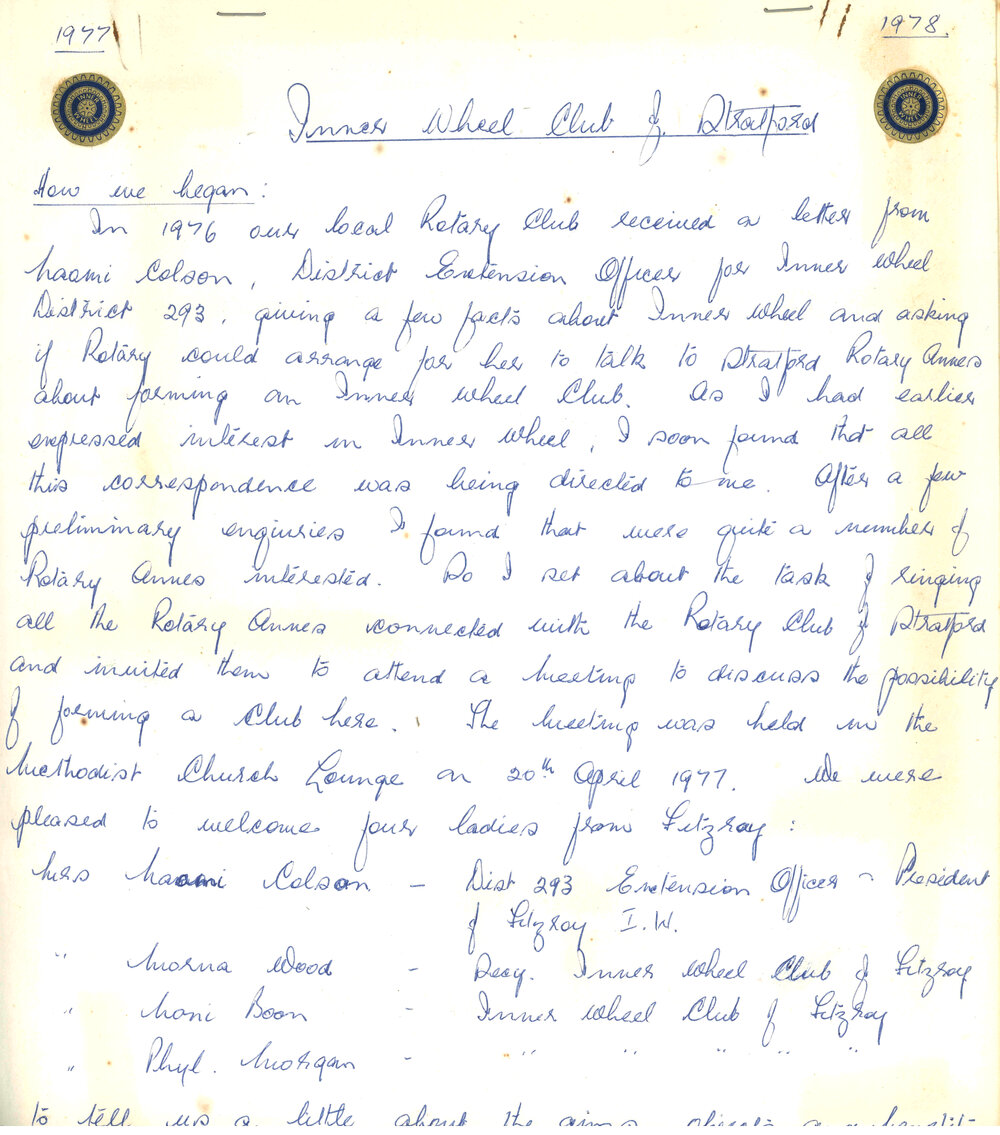 1977
1978.
INNER WHEEL
INNER WHEEL
Inner Wheel Club of Stratford
How we began:
In 1976 our local Rotary Club received a letter from
Naomi Colson, District Extension Officer for Inner Wheel
District 293, giving a few facts about Inner Wheel and asking
if Rotary could arrange for her to talk to Stratford Rotary Annes
about forming an Inner Wheel Club. As I had earlier
expressed interest in Inner Wheel, I soon found that all
this correspondence was being directed to me. After a few
preliminary enquiries I found that were quite a number of
Rotary Annes interested. So I set about the task of ringing
all the Rotary Annes connected with the Rotary Club of Stratford
and invited them to attend a meeting to discuss the possibility
of forming a Club here. The meeting was held in the
Methodist Church Lounge on 20th April 1977. We were
pleased to welcome four ladies from Fitzroy:
Mrs Naomi Colson - Dist 293 Extension Officer - President
of Fitzroy I.W.
" Morna Wood - Secy. Inner Wheel Club of Fitzroy
" Noni Boon - Inner Wheel Club of Fitzroy
" Phyl. Morgan - " " " "
to tell us a little about the aims, objects